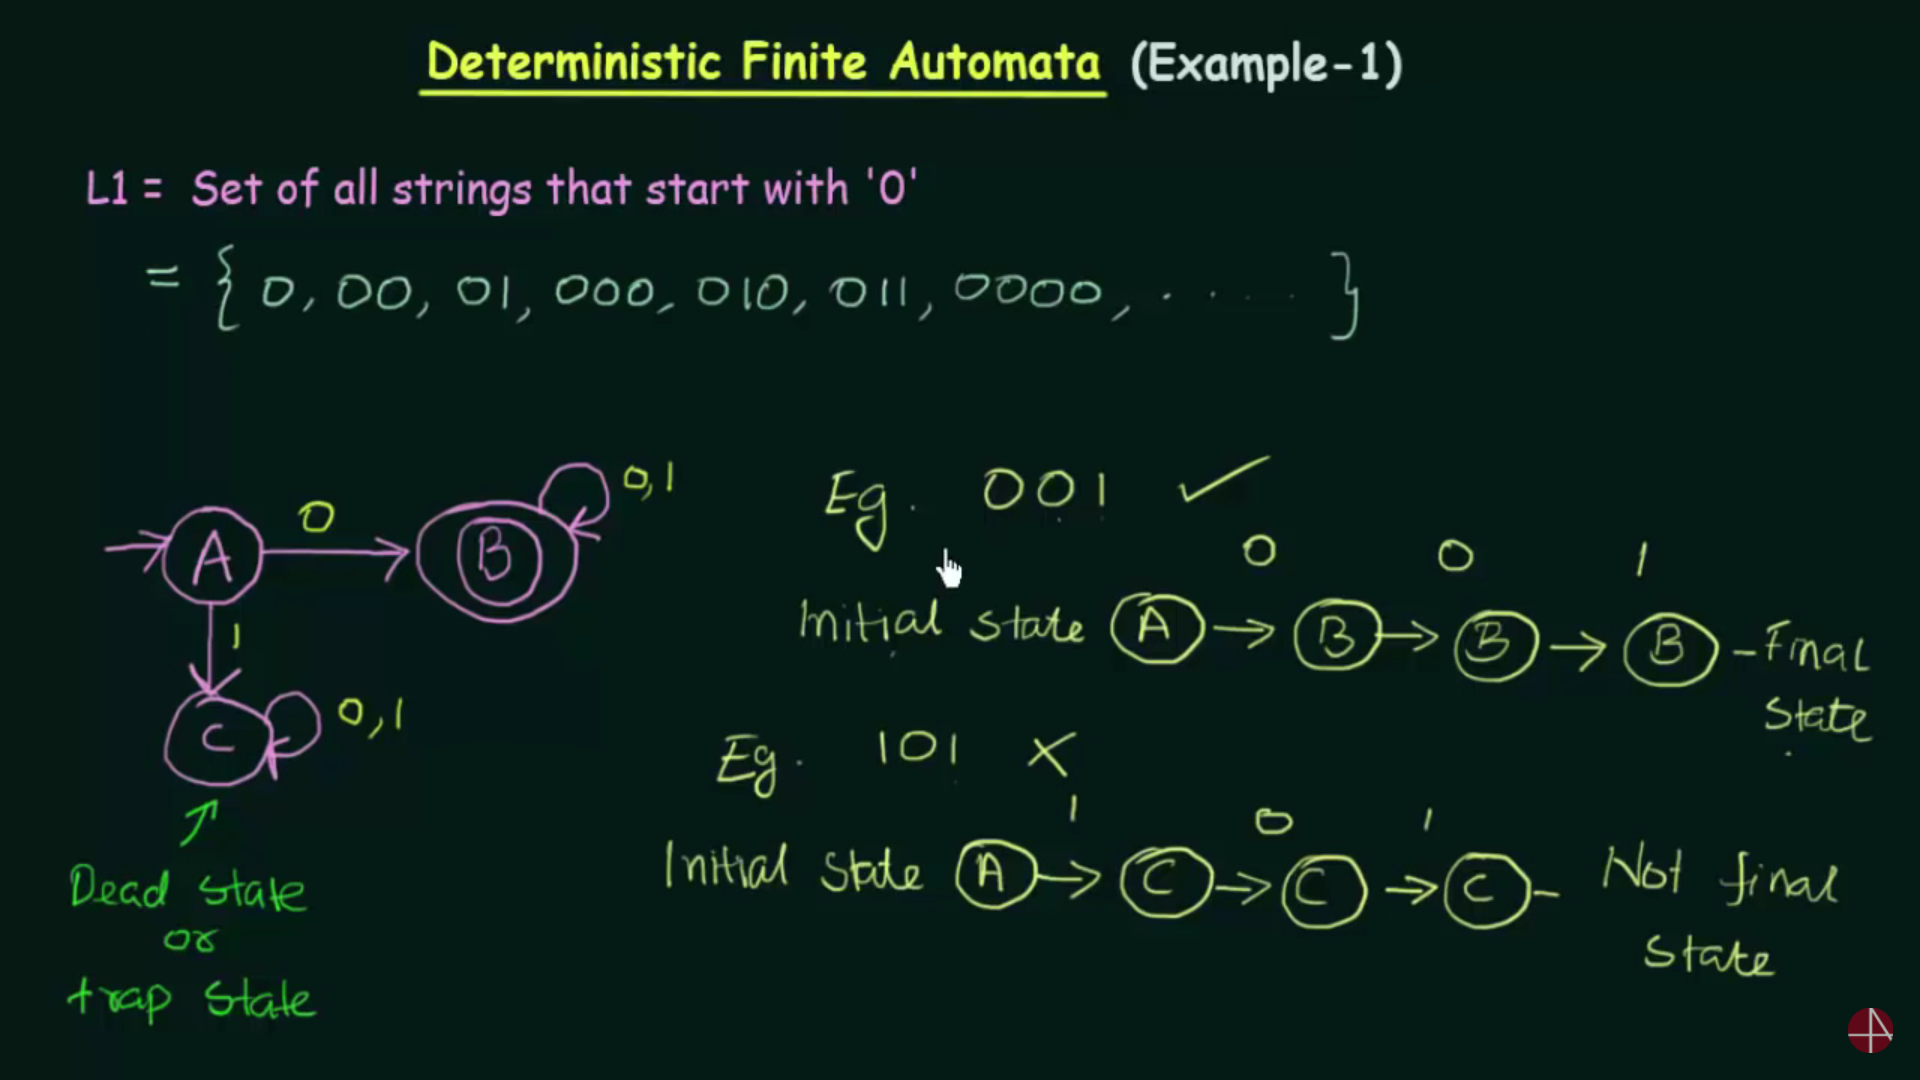 Deterministic Finite Automata (Example-1)
L1 = Set of all strings that start with '0'
= { 0, 00, 01, 000, 010, 011, 0000, ..... }
0,1
0
A
B
1
C
0,1
Dead State
or
trap State
Eg. 001 ✓
0 0 1
Initial state A → B → B → B – Final
State
Eg. 101 X
1 0 1
Initial State A → C → C → C – Not final
State